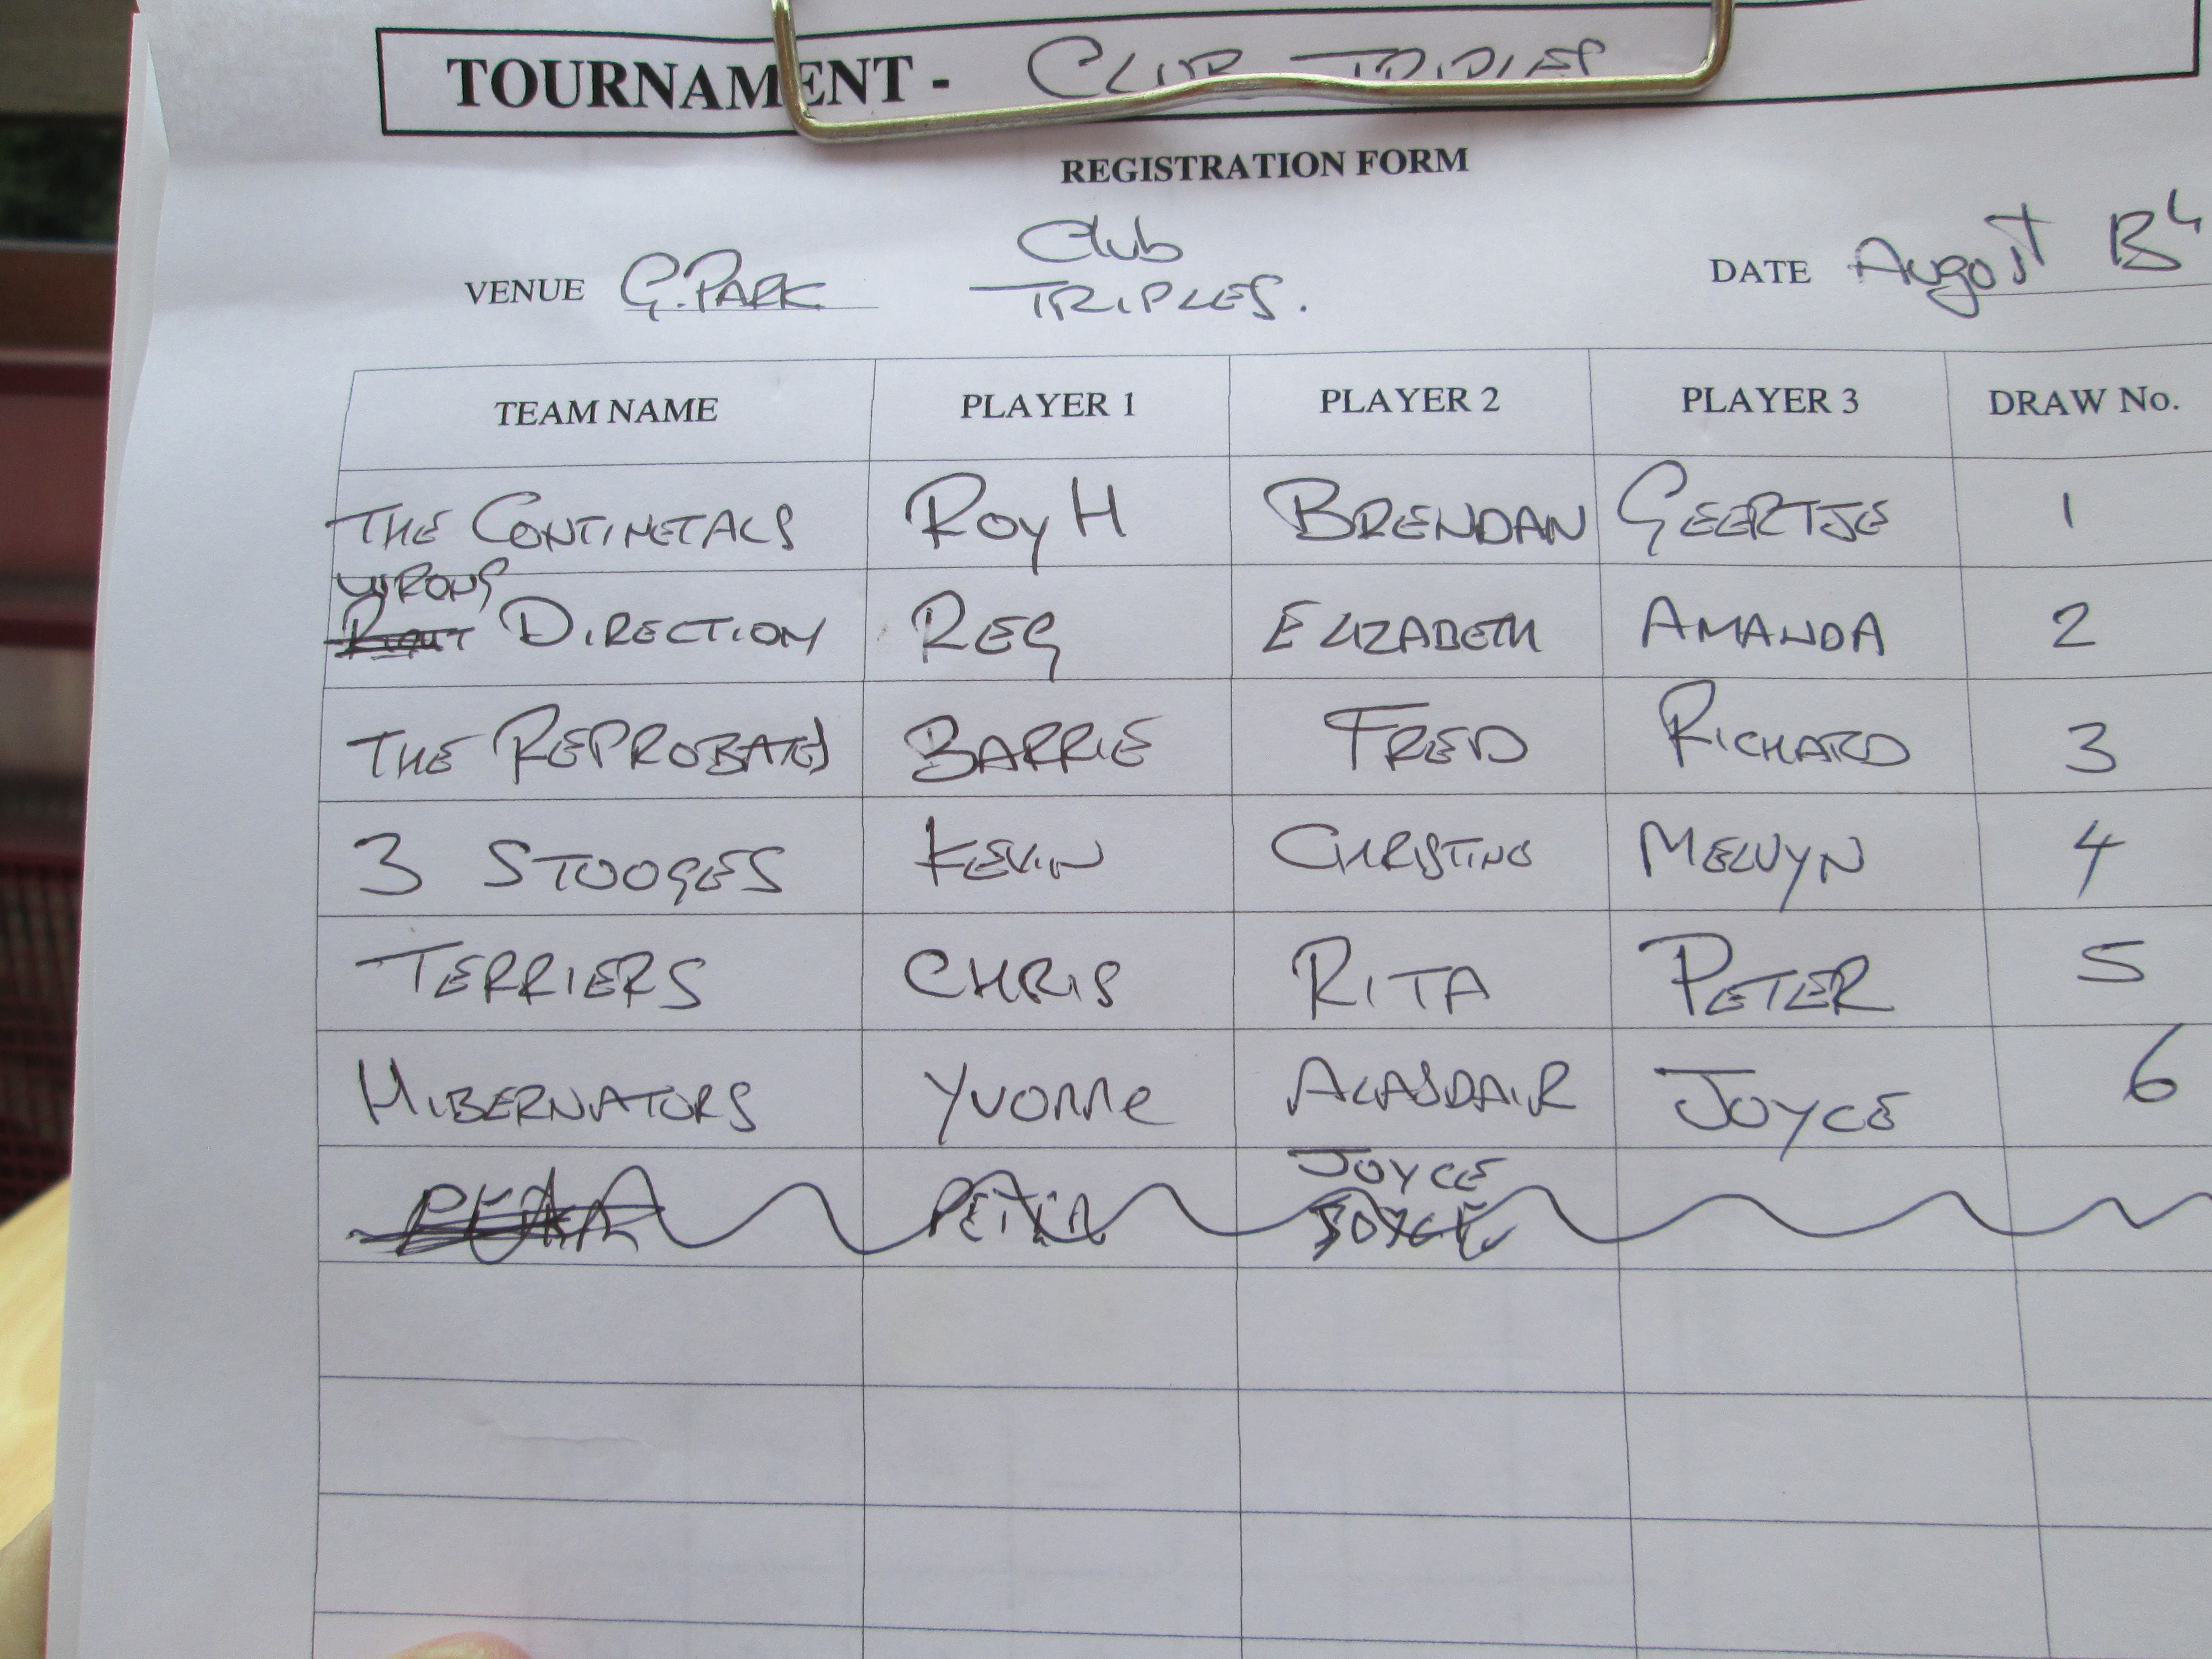 TOURNAMENT - CLUB TRIPLES
REGISTRATION FORM
VENUE G.PARK Club TRIPLES. DATE August
TEAM NAME PLAYER 1 PLAYER 2 PLAYER 3 DRAW No.
THE CONTINETALS Roy H BRENDAN GEERTJE 1
WRONG
DIRECTION REG ELIZABETH AMANDA 2
THE REPROBATES BARRIE FRED RICHARD 3
3 STOOGES KEVIN CHRISTINE MELVYN 4
TERRIERS CHRIS RITA PETER 5
HIBERNATORS YVONNE ALASDAIR JOYCE 6
JOYCE
PETER